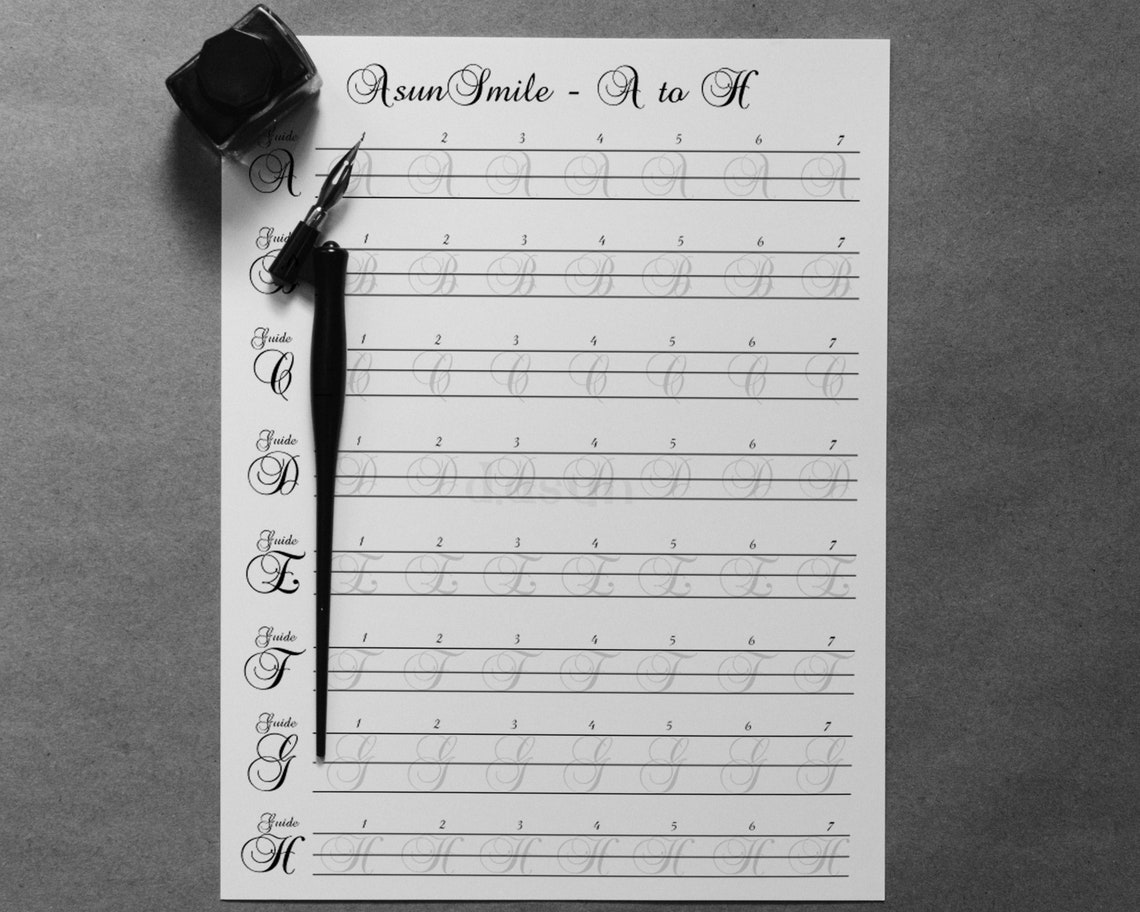 AsunSmile - A to H
Guide 1 2 3 4 5 6 7
A A A A A A A A
Guide 1 2 3 4 5 6 7
B B B B B B B B
Guide 1 2 3 4 5 6 7
C C C C C C C C
Guide 1 2 3 4 5 6 7
D D D D D D D D
Guide 1 2 3 4 5 6 7
E E E E E E E E
Guide 1 2 3 4 5 6 7
F F F F F F F F
Guide 1 2 3 4 5 6 7
G G G G G G G G
Guide 1 2 3 4 5 6 7
H H H H H H H H